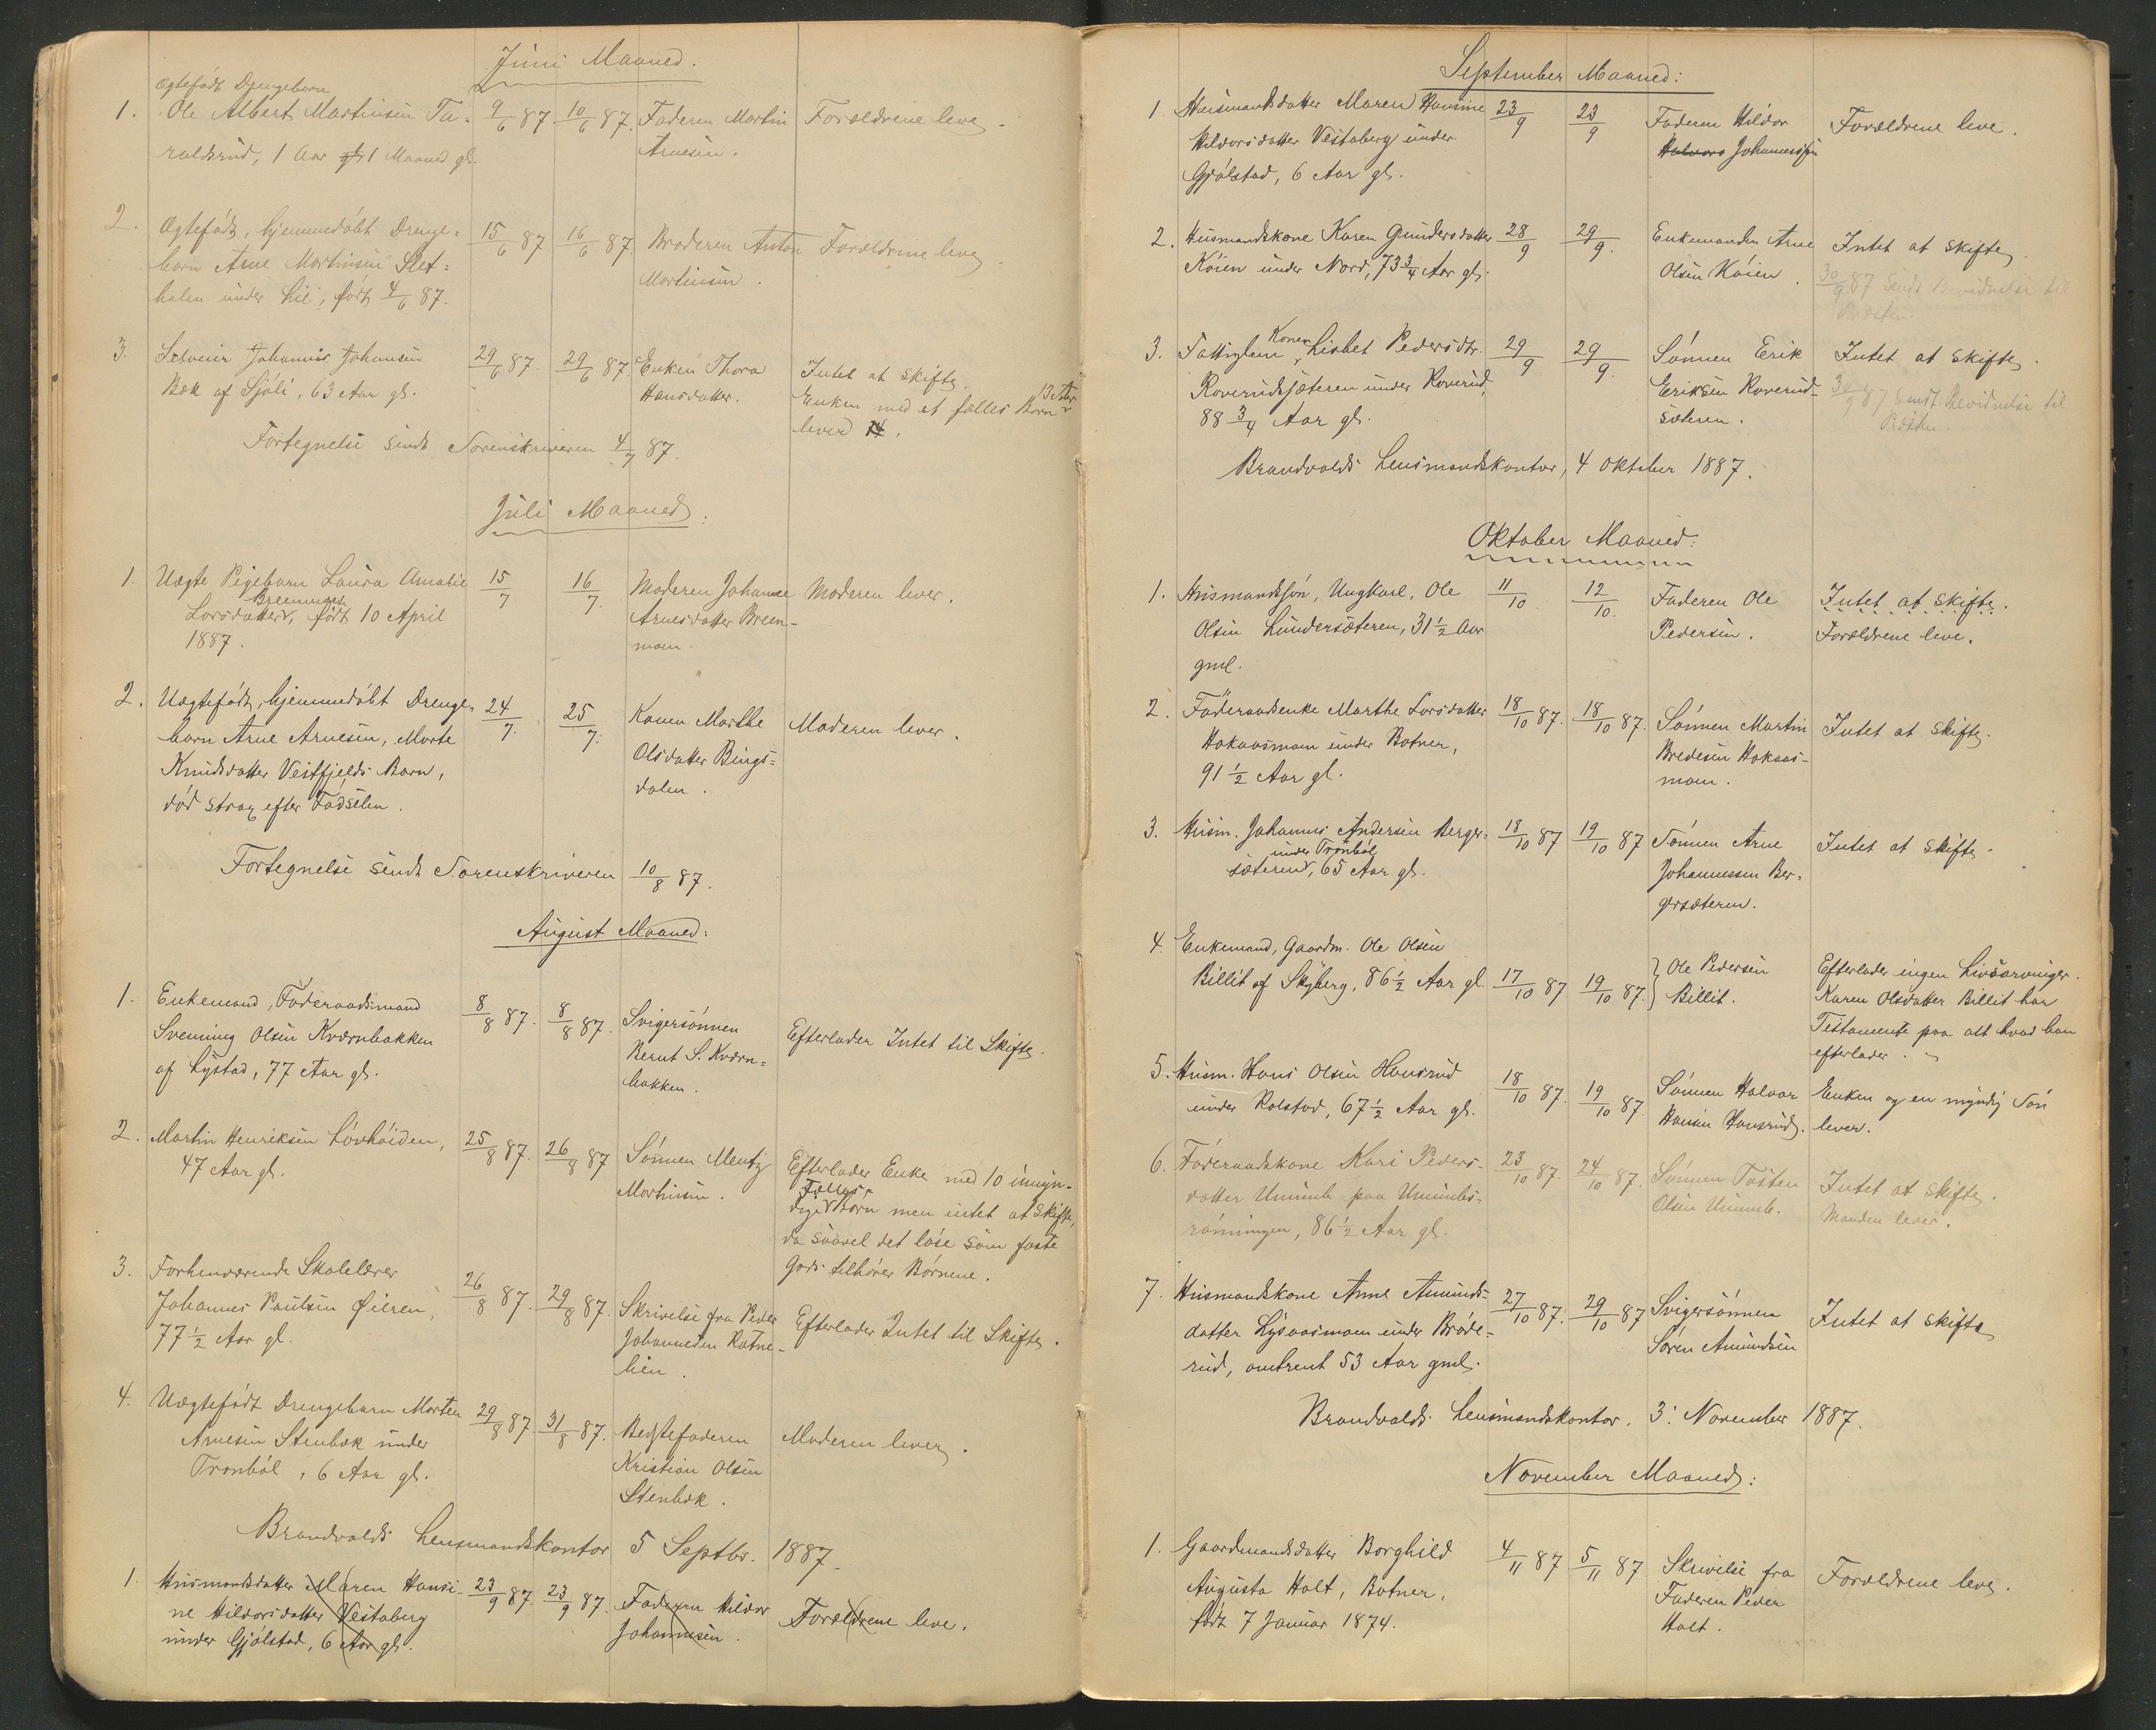 Juni Maaned.
Ægtefødt Drengebarn
1. Ole Albert Martinsen Ta= 9/6 87 10/6 87. Faderen Martin Forældrene leve.
raldsrud, 1 Aar 1 Maaned gl. Arnesen.
2. Ægtefødt, hjemmedøbt Drenge= 15/6 87 16/6 87. Broderen Anton Forældrene leve.
barn Arne Martinsen Slet= Martinsen.
halen under Lie, født 4/6 87.
3. Selveier Johannes Johansen 29/6 87. 29/6 87. Enken Thora Intet at skifte.
Bæk af Sjøli, 63 Aar gl. Hansdatter. Enken med et fælles Barn 13 Aar
lever.
Fortegnelse sendt Sorenskriveren 4/7 87.
Juli Maaned.
1. Uægte Pigebarn Laura Amalie 15/7 16/7. Moderen Johanne Moderen lever.
Larsdatter Breenmoen, født 10 April Arnesdatter Breen-
1887. moen.
2. Uægtefødt, hjemmedøbt Drenge= 24/7. 25/7. Konen Marthe Moderen lever.
barn Arne Arnesen, Marte Olsdatter Bings=
Knudsdatter Vestfjelds Barn, dalen.
død strax efter Fødselen.
Fortegnelse sendt Sorenskriveren 10/8 87.
August Maaned:
1. Enkemand, Føderaadsmand 8/8 87. 8/8 87. Svigersønnen Efterlader Intet til Skifte.
Svenning Olsen Kværnbakken Bernt S. Kværn=
af Lystad, 77 Aar gl. bakken.
2. Martin Henriksen Løvhøiden, 25/8 87. 26/8 87 Sønnen Mentz Efterlader Enke med 10 umyn-
47 Aar gl. Martinsen. dige Fælles Børn men intet at skifte,
da saavel det løse som faste
Gods tilhører Børnene.
3. Forhenværende Skolelærer 26/8 87. 29/8 87. Skrivelse fra Peder Efterlader Intet til Skifte.
Johannes Paulsen Øieren, Johannesen Rotne-
77 1/2 Aar gl. lien.
4. Uægtefødt Drengebarn Morten 29/8 87. 31/8 87. Bedstefaderen Moderen lever.
Arnesen Stenbæk under Kristian Olsen
Tronbøl, 6 Aar gl. Stenbæk.
Brandvalds Lensmandskontor 5 Septbr. 1887.
1. Husmandsdatter Maren Hansi- 23/9 87. 23/9 87. Faderen Hildor Forældrene leve.
ne Hildorsdatter Vestaberg Johannesen.
under Gjølstad, 6 Aar gl.
September Maaned:
1. Husmandsdatter Maren Hansine 23/9 23/9 Faderen Hildor Forældrene leve.
Hildorsdatter Vestaberg under Halvors Johannessen
Gjølstad, 6 Aar gl.
2. Husmandskone Karen Gundersdatter 28/9 29/9. Enkemanden Arne Intet at skifte.
Køien under Nord, 73 3/4 Aar gl. Olsen Køien. 30/9 87 sendt Bevidnelse til
Præsten.
3. Fattiglem Konen Lisbet Pedersdtr. 29/9 29/9. Sønnen Erik Intet at skifte.
Roverudsæteren under Roverud, Eriksen Roverud- 30/9 87 sendt Bevidnelse til
88 3/4 Aar gl. sæteren. Præsten.
Brandvalds Lensmandskontor, 4 Oktober 1887.
Oktober Maaned:
1. Husmandssøn, Ungkarl, Ole 11/10 12/10. Faderen Ole Intet at skifte.
Olsen Lundersæteren, 31 1/2 Aar Pedersen. Forældrene leve.
gml.
2. Føderaadsenke Marthe Larsdatter 18/10 87. 18/10 87. Sønnen Martin Intet at skifte.
Hokaasmoen under Botner, Bredesen Hokaas-
91 1/2 Aar gl. moen.
3. Husm. Johannes Andersen Berger= 18/10 87 19/10 87 Sønnen Arne Intet at skifte.
sæteren under Tronbøl, 65 Aar gl. Johannessen Ber=
gersæteren.
4. Enkemand, Gaardm. Ole Olsen Ole Pedersen Efterlader ingen Livsarvinger.
Billit af Skyberg, 86 1/2 Aar gl. 17/10 87 19/10 87. Billit. Karen Olsdatter Billit har
Testamente paa alt hvad han
efterlader.
5. Husm. Hans Olsen Hansrud 18/10 87. 19/10 87. Sønnen Halvor Enken og en myndig Søn
under Rolstad, 67 1/2 Aar gl. Hansen Hansrud. lever.
6. Føderaadskone Kari Peders- 23/10 87. 24/10 87. Sønnen Tosten Intet at skifte.
datter Ummeb paa Ummebs= Olsen Ummeb. Manden lever.
rønningen, 86 1/2 Aar gl.
7. Husmandskone Anne Amunds- 27/10 87. 29/10 87 Svigersønnen Intet at skifte
datter Lysaasmoen under Brøde- Søren Amundsen
rud, omtrent 53 Aar gml.
Brandvalds Lensmandskontor, 3. November 1887.
November Maaned:
1. Gaardmandsdatter Borghild 4/11 87 5/11 87 Skrivelse fra Forældrene leve.
Augusta Holt, Botner, Faderen Peder
født 7 Januar 1874. Holt.